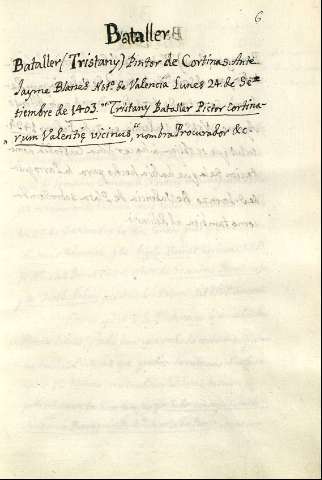 6
Bataller
Bataller (Tristany) Pintor de Cortinas. Ante
Jayme Blanes Not.º de Valencia Lunes 24 de Se=
tiembre de 1403. "Tristany Bataller Pictor Cortina-
"rum Valentie vicinus," nombra Procurador &c.